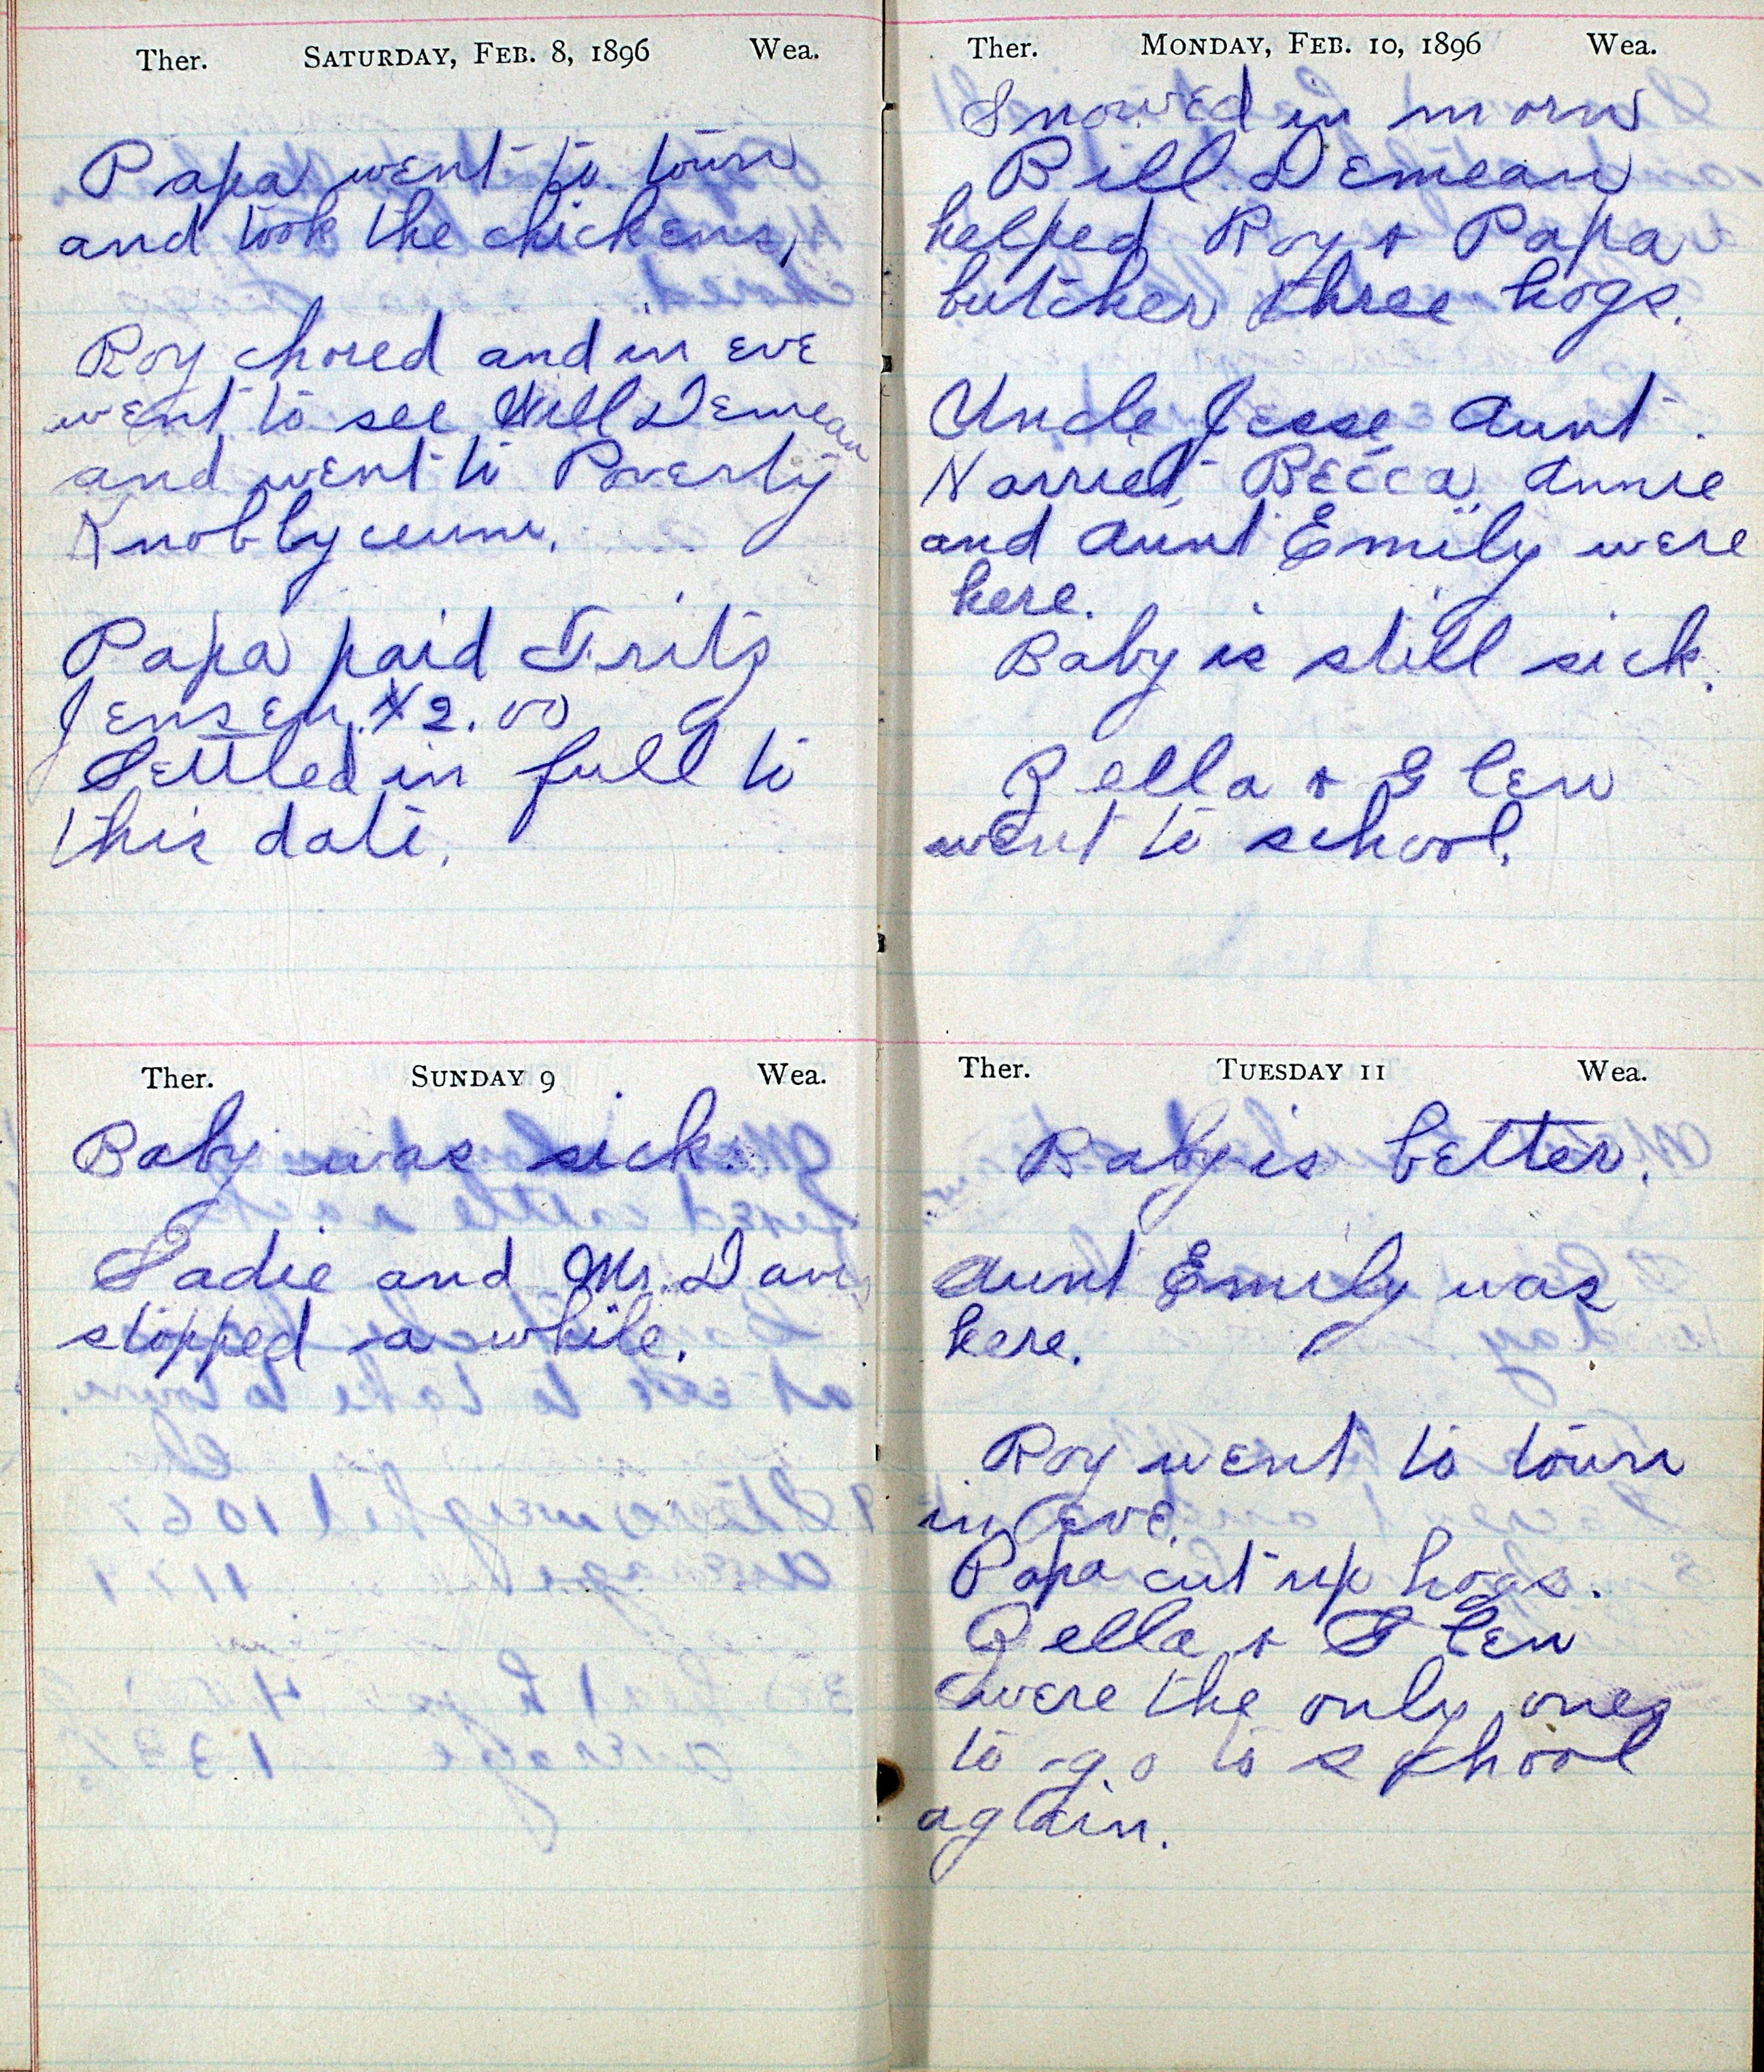 Ther. SATURDAY, FEB. 8, 1896 Wea.
Papa went to town
and took the chickens,
Roy chored and in eve
went to see Will Demean
and went to Poverty
Knobblyceum.
Papa paid Fritz
Jensen. $2.00
Settled in full to
this date.
Ther. SUNDAY 9 Wea.
Baby was sick.
Sadie and Mr. Davis
stopped a while.
Ther. MONDAY, FEB. 10, 1896 Wea.
Snowed in morn
Bill Demean
helped Roy + Papa
butcher three hogs.
Uncle Jesse Aunt
Harriet Becca Annie
and Aunt Emily were
here.
Baby is still sick.
Zella + Glen
went to school.
Ther. TUESDAY 11 Wea.
Baby is better.
Aunt Emily was
here.
Roy went to town
in eve.
Papa cut up hogs.
Zella + Glen
were the only ones
to go to school
again.